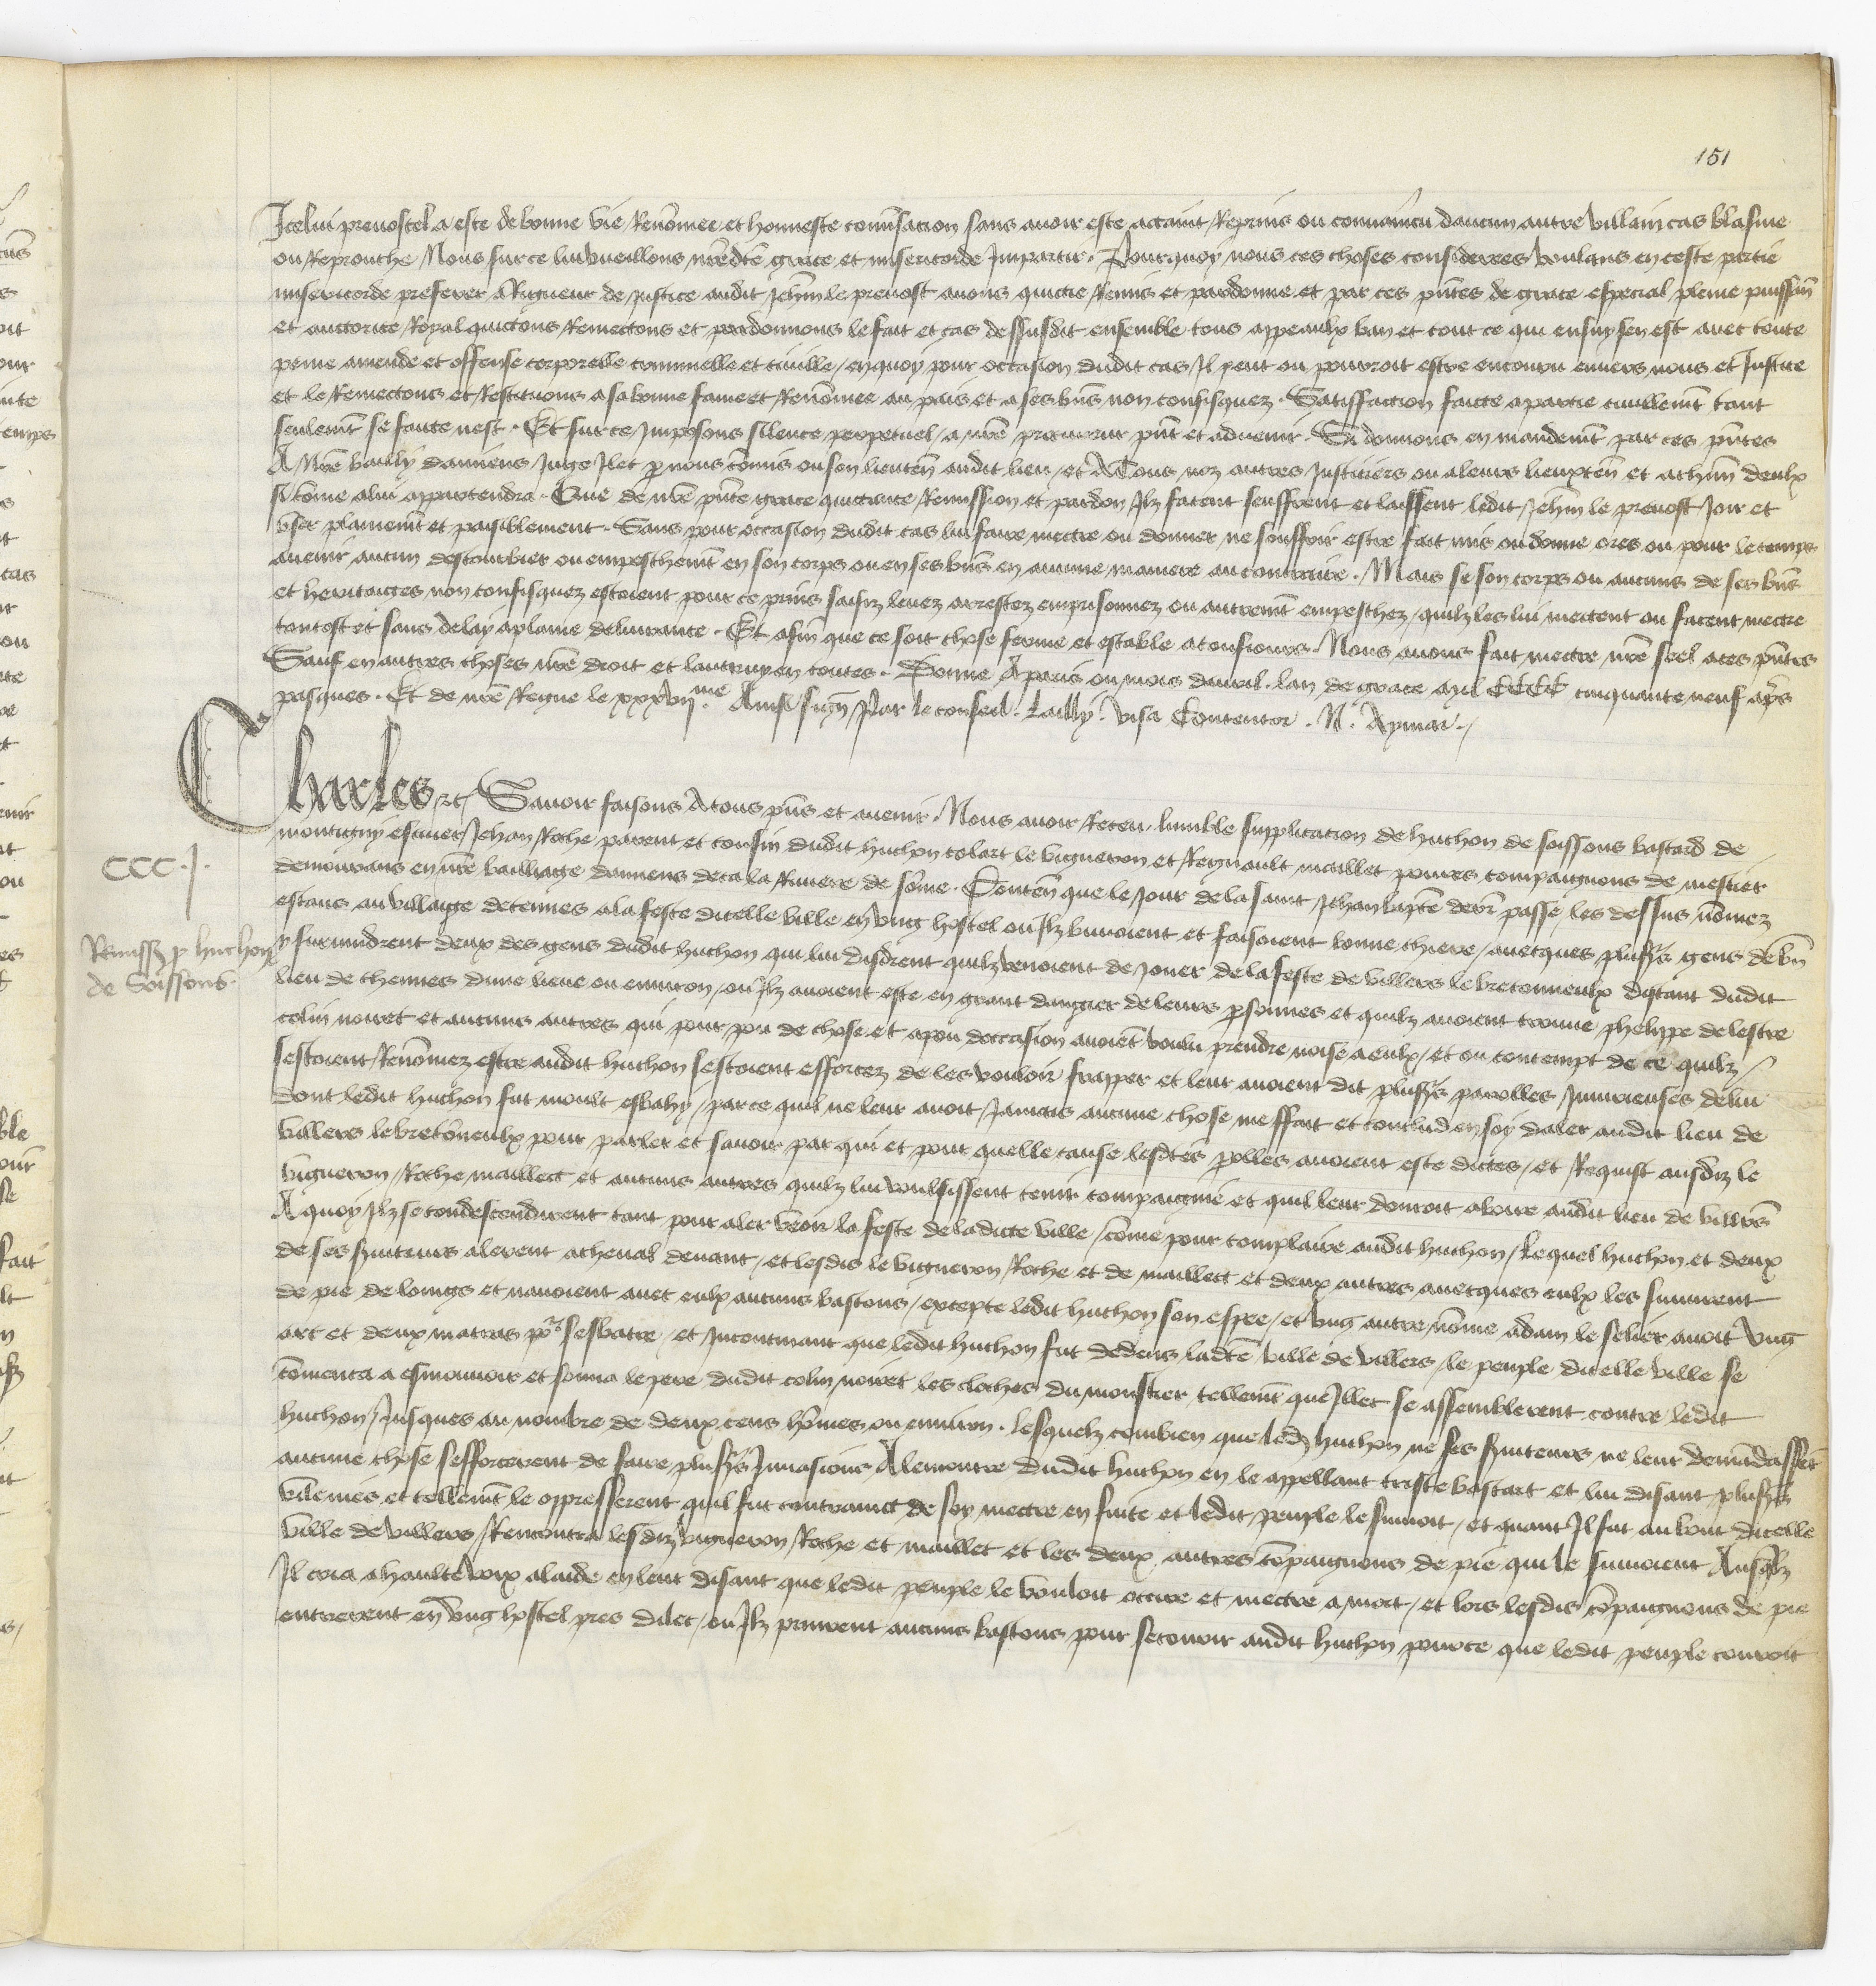 151
Icelui prevostel a este de bonne vie Renõmee et honneste conv̾sacion sans avoir este actaint Reprins ou convaincu daucun autre villain cas blasme
ou Reprouche Nous sur ce lui vueillons nr̃edc̃te grace et misericorde Impartir. Pourquoy nous ces choses considerees voulans en ceste partie
misericorde preferer a Rigueur de justice audit Jehm̃ le prevost avons quicte Remis et pardonne et par ces pñtes de grace especial pleine puissañ
et auctorite Royal quictons Remectons et pardonnons le fait et cas dessusdit ensemble tous appeaulx ban et tout ce qui ensuy sen est avec toute
peine amende et offense corporelle criminelle et civille / en quoy pour occasion dudit cas Il peut ou pourroit estre encouru envers nous et Justice
et le Remectons et Restituons a sa bonne fame et Renõmee au pais et a ses biẽs non confisquez. Satisfaction faicte a partie civillemẽt tant
seulemẽt se faicte nest. Et sur ce Imposons silence perpetuel / a nr̃e procureur pñt et advenir. Si donnons en mandemẽt par ces pñtes
A Nr̃e bailly damiens Juge Ilec p̱ nous cõmis ou son lieuteñ audit lieu / et A Tous noz autres Justiciers ou a leurs lieuxteñ et a chm̃ deulx
si cõme a lui appartendra. Que de nr̃e pñte grace quictance Remission et pardon Ilz facent seuffrent et laissent ledit Jehm̃ le prevost Joir et
user plainemẽt et paisiblement. Sans pour occasion dudit cas lui faire mectre ou donner ne souffrir estre fait mis ou donne ores ou pour le temps
avenir aucun destourbier ou empeschemẽt en son corps ou en ses biẽs en aucune maniere au contraire. Mais se son corps ou aucuns de ses biẽs
et heritaiges non confisquez estoient pour ce prins saisiz levez arrestez emprisonnez ou autremẽt empeschez / quilz les lui mectent ou facent mectre
tantost et sans delay a plaine delivrance. Et afin que ce soit chose ferme et estable a tousiours. Nous avons fait mectre nr̃e seel a ces pñtes
Sauf en autres choses nr̃e droit et lautruy en toutes. Donne A paris ou mois davril. lan de grace mil CCCC cinquante neuf ap̃s
pasques. Et de nr̃e Regne le xxxvij.me Ainsi sign̄ Par le conseil. Lailly. Visa Contentor. N. Aymar.
CCC.J.
Remiss̃ p̱ huchon
de Soissons.
Charles etc Savoir faisons A tous pñs et avenir. Nous avoir Receu lumble supplicacion de huchon de soissons bastard de
montigny escuier Jehan Roche parent et cousin dudit huchon colart le vigneron et Regnault maillet povres compaignons de mestier
demourans en nr̃e bailliage damiens deca la Riviere de sõme. Conteñ que le Jour de la saint Jehan bapt̃e derñ passe / les dessus nõmez
estans au villaige de cennes a la feste dicelle ville en ung hostel ou Ilz buvoient et faisoient bonne chiere / avecques plusr̃s gens de biẽ
y survindrent deux des gens dudit huchon qui lui disdrent quilz venoient de Jouer de la feste de villers le bretonneulx distant dudit
lieu de chennes dune lieue ou environ / ou Ilz avoient este en grant dangier de leurs p̱sonnes et quilz avoient trouve phelippe de lestre
colin noiret et aucuns autres qui pour pou de chose et a pou doccasion avoiẽt voulu prendre noise a eulx / et ou contempt de ce quilz
sestoient Renõmez estre audit huchon sestoient efforcez de les vouloir frapper et leur avoient dit plusr̃s parolles Injurieuses de lui
dont ledit huchon fut moult esbahy / par ce quil ne leur avoit Jamais aucune chose meffait et conclud en soy daler audit lieu de
villers le bretõneulx pour parler et savoir par qui et pour quelle cause lesdc̃tes p̱olles avoient este dictes / et Requist ausdiz le
vigneron / Roche maillect et aucuns autres quilz lui voulsissent tenir compaignie et quil leur donroit a boire audit lieu de villers
A quoy Ilz se condescendirent tant pour aler veoir la feste de ladicte ville / cõme pour complaire audit huchon / Lequel huchon et deux
de ses s̾viteurs alerent a cheval devant / et lesdis le vigneron Roche et de maillect et deux autres avecques eulx les suivirent
de pie de loings et navoient avec eulx aucuns bastons / excepte ledit huchon son espee / et ung autre nõme adam le selier avoit ung
arc et deux matras po᷑ sesbatre / et Incontinant que ledit huchon fut dedens ladc̃te ville de villers / le peuple dicelle ville se
cõmenca a esmouvoir et sonna le pere dudit colin noiret les cloches du monstier tellemẽt que Illec se assemblerent contre ledit
huchon / Jusques au nombre de deux cens hõmes ou environ. Lesquelz combien que led̃ huchon ne ses s̾viteurs ne leur demãdassẽt
aucune chose sefforcerent de faire plusr̃s Invasions A lencontre dudit huchon en le appellant triste bastart et lui disant plusr̃s
vilenies et tellemẽt le oppresserent quil fut contrainct de soy mectre en fuite et ledit peuple le suivoit / et quant Il fut au bout dicelle
ville de villers Rencontra lesdiz vigneron Roche et maillet et les deux autres cõpaignons de pie qui le suivoient Ausq̃lz
Il cria a haulte voix a laide en leur disant que ledit peuple le vouloit occire et mectre a mort / et lors lesdis cõpaignons de pie
entrerent en ung hostel pres dilec / ou Ilz prinrent aucuns bastons pour secourir audit huchon pource que ledit peuple couroit